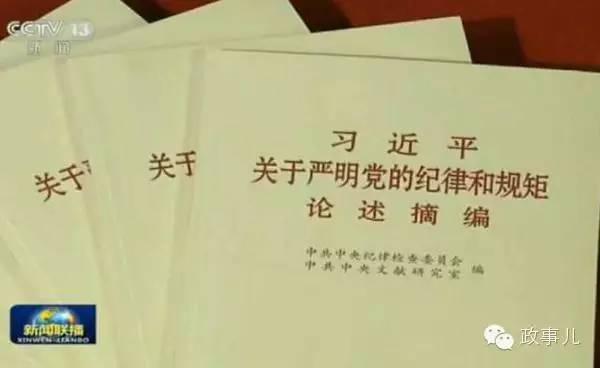 CCTV 13
新闻
习近平
关于严明党的纪律和规矩
论述摘编
中共中央纪律检查委员会
中共中央文献研究室
编
关于严
关于
新闻联播
XINWEN-LIANBO
政事儿